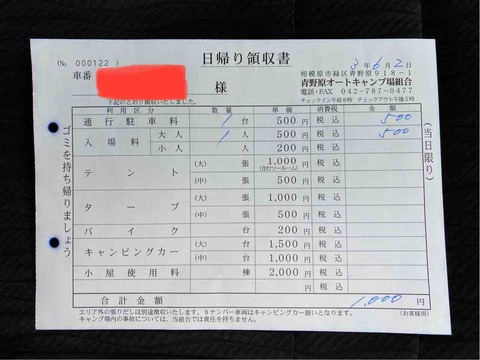 日帰り領収書
(No. 000122 )
車番
様
3年6月2日
相模原市緑区青野原918-1
青野原オートキャンプ場組合
電話・FAX 042-787-0477
チェックイン午前8時 チェックアウト午後5時
下記のとおり領収いたしました。
利用区分 数量 単価 消費税 金額
通行駐車料 1台 500円 税込 500
入場料 大人 1人 500円 税込 500
小人 人 200円 税込
テント (大) 張 1,000円 (含むツールーム) 税込
(中) 張 500円 税込
タープ (大) 張 1,000円 税込
(中) 張 500円 税込
バイク 台 200円 税込
キャンピングカー (大) 台 1,500円 税込
(中) 台 1,000円 税込
小屋使用料 棟 2,000円 税込
合計金額 1,000円
エリア外の張りだしは別途徴収いたします。8ナンバー車両はキャンピングカー扱いとなります。
キャンプ場内の事故については、当組合では責任を持ちません。
(お客様用)
ゴミを持ち帰りましょう
(当日限り)